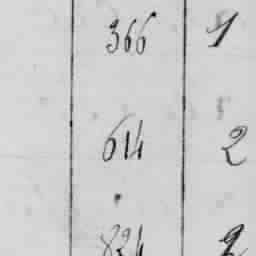 366 1
614 2
824 2